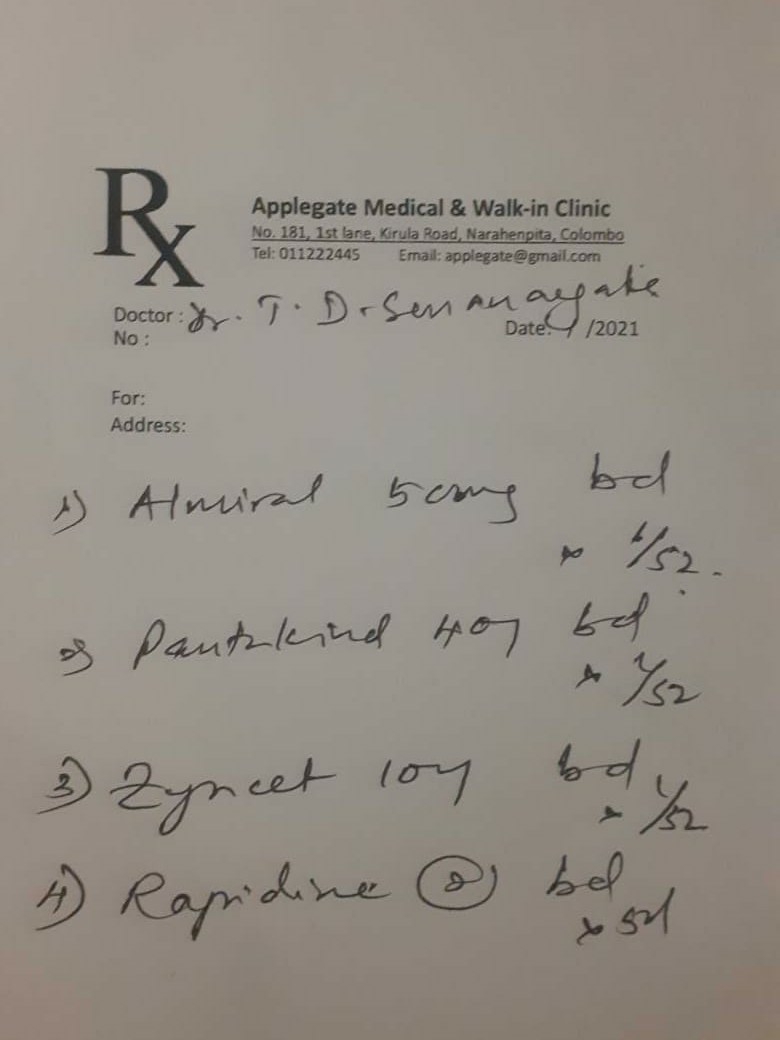 Rx
Applegate Medical & Walk-in Clinic
No. 181, 1st lane, Kirula Road, Narahenpita, Colombo
Tel: 011222445 Email: applegate@gmail.com
Doctor : Dr. T. D. Senanayake
Date: /2021
No :
For:
Address:
1) Almiral 50mg bd
x 1/52.
2) Pantakind 40 bd
x 1/52
3) Zyncet 10 bd
x 1/52
4) Rapidine bd
x 5d